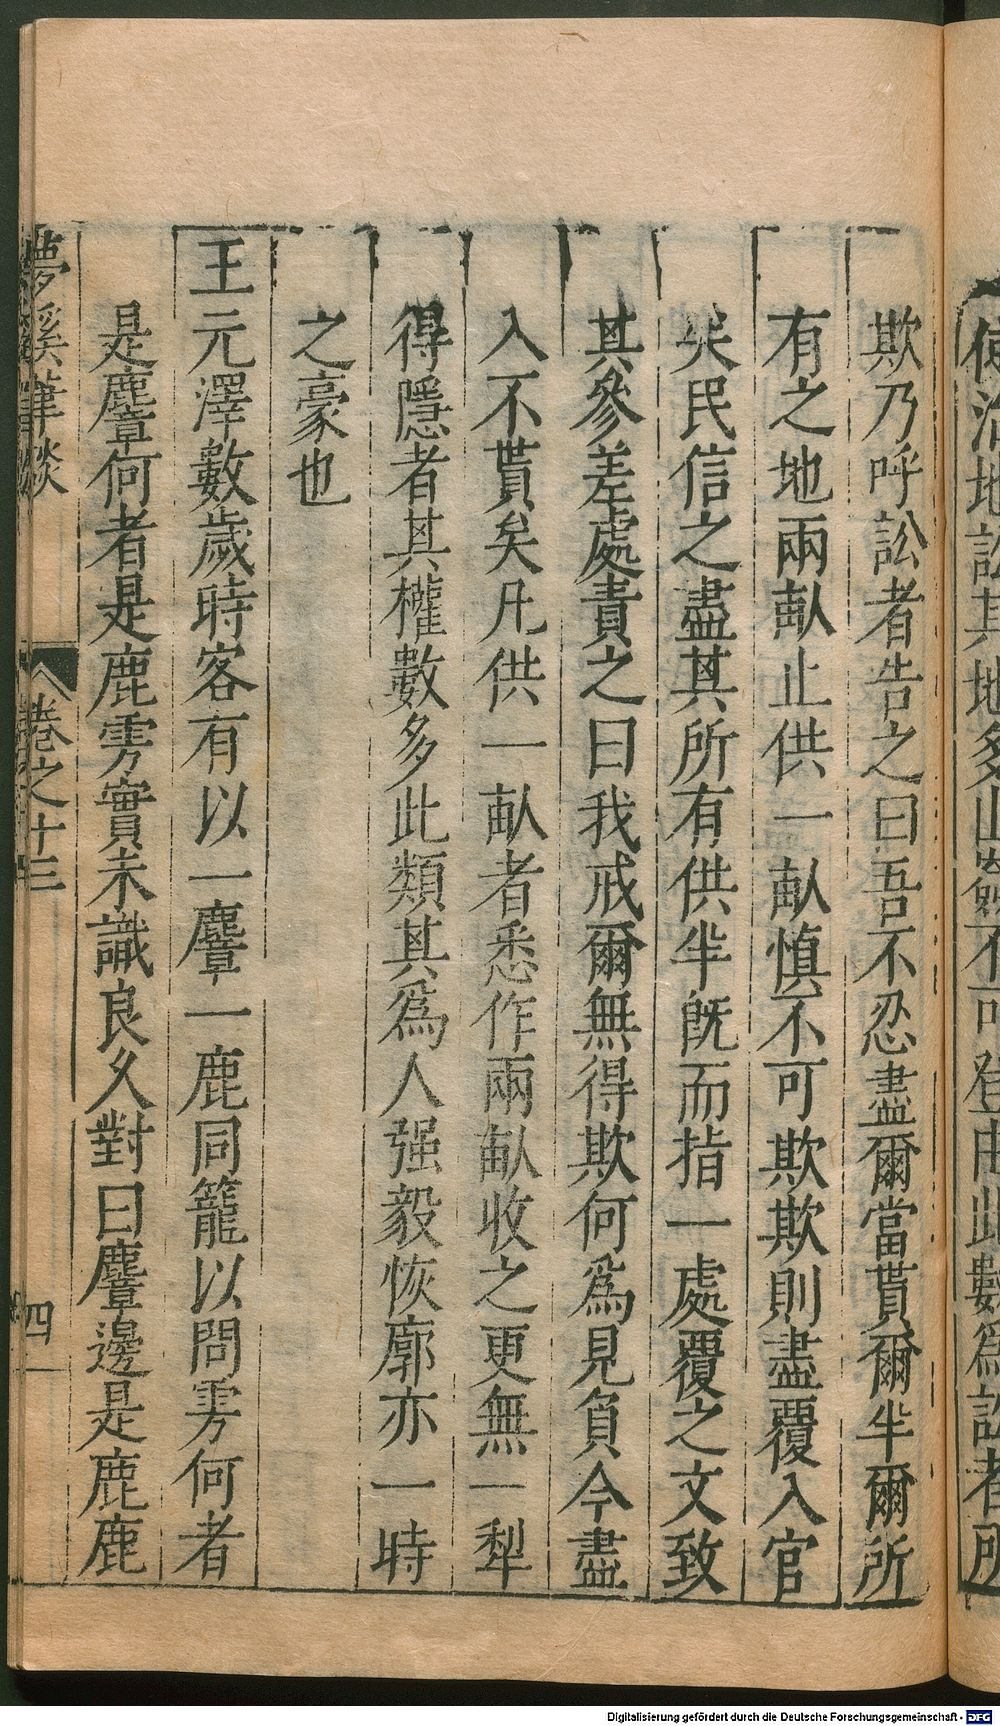 欺乃呼訟者告之曰吾不忍盡爾當貰爾半爾所
有之地兩畝止供一畝慎不可欺欺則盡覆入官
矣民信之盡其所有供半旣而指一處覆之文致
其參差處責之曰我戒爾無得欺何爲見負今盡
入不貰矣凡供一畝者悉作兩畝收之更無一犁
得隱者其權數多此類其爲人强毅恢廓亦一時
之豪也
王元澤數歲時客有以一麞一鹿同籠以問雱何者
是麞何者是鹿雱實未識良久對曰麞邊是鹿鹿
夢溪筆談
卷之十三
四
地訟其地多山嶮不可登由此數爲訟者所
Digitalisierung gefördert durch die Deutsche Forschungsgemeinschaft - DFG